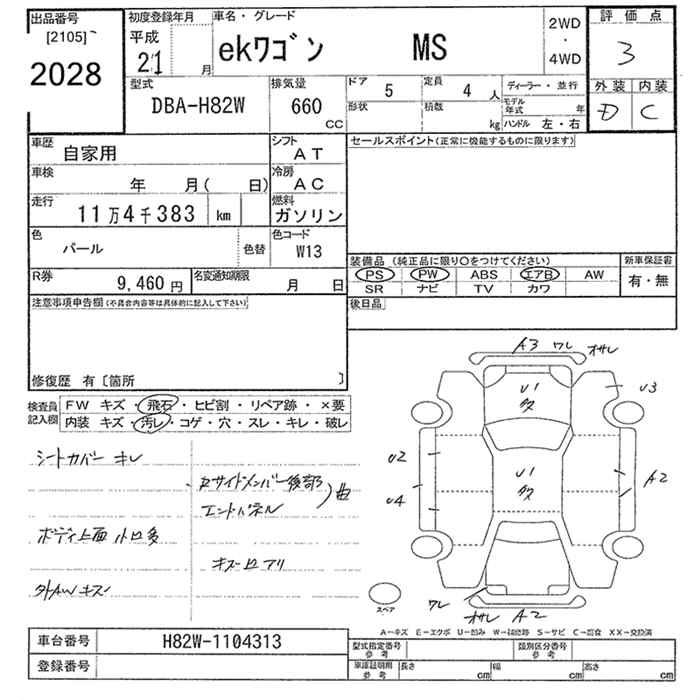 出品番号
[2105]
2028
初度登録年月
平成
21
月
車名・グレード
ekワゴン MS
2WD
・
4WD
評価点
3
外装 内装
D C
型式
DBA-H82W
排気量
660
CC
ドア
5
定員
4 人
形状
積数
kg
ディーラー・並行
モデル年式 年
ハンドル 左・右
車歴
自家用
シフト
AT
セールスポイント(正常に機能するものに限ります)
車検
年 月( 日)
冷房
AC
走行
11万4千383 km
燃料
ガソリン
色
パール
色替
色コード
W13
装備品 (純正品に限り○をつけてください)
新車保証書
PS PW ABS エアB AW
SR ナビ TV カワ
有・無
R券
9,460円
名変通知期限
月 日
後日品
注意事項申告欄(不具合内容等は具体的に記入して下さい)
修復歴 有〔箇所 〕
検査員記入欄
FW キズ・飛石・ヒビ割・リペア跡・×要
内装 キズ・汚レ・コゲ・穴・スレ・キレ・破レ
シートカバー キレ
Rサイドメンバー後部
エンドパネル
)曲
ボディ上面 小口多
キズ凹アリ
外AW キズ
A3 ワレ オサレ
U1
多
U3
U2
U1
多
A2
U4
ワレ
オサレ A2
スペア
A-キズ E-エクボ U-凹み W-補修跡 S-サビ C-腐食 XX-交換済
車台番号
H82W-1104313
登録番号
型式指定番号
参考
類別区分番号
参考
車庫証明用
参考
長さ cm
幅 cm
高さ cm